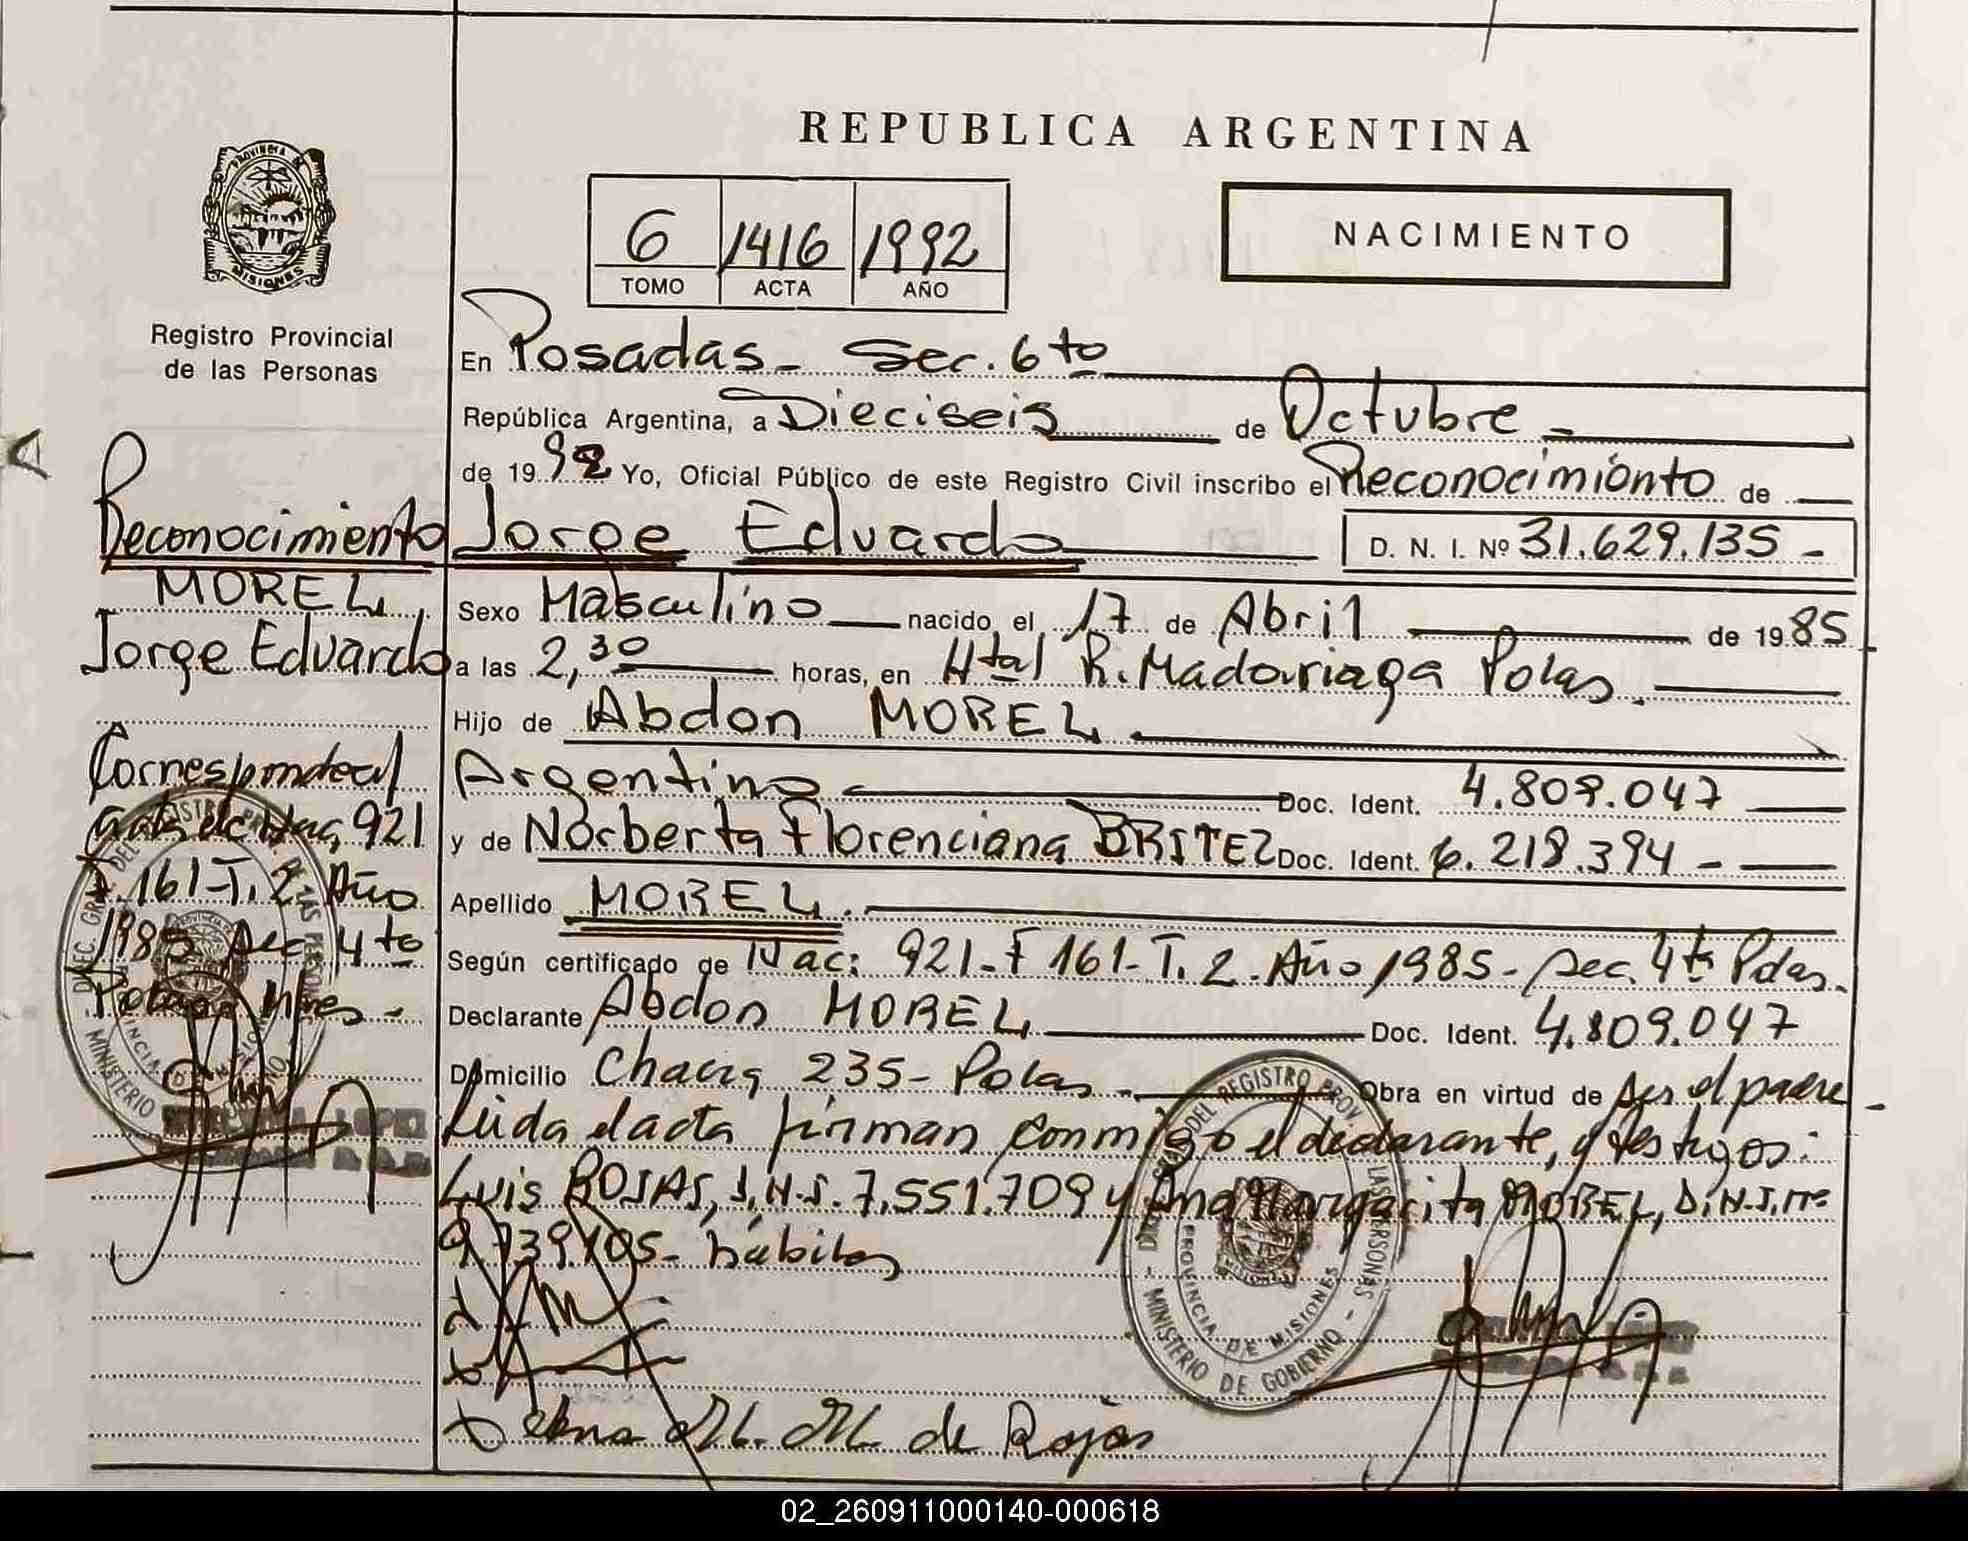 REPUBLICA ARGENTINA
PROVINCIA DE
MISIONES
6 1416 1992
TOMO ACTA AÑO
NACIMIENTO
Registro Provincial
de las Personas
En Posadas - Sec. 6to
República Argentina, a Dieciseis de Octubre
de 1992 Yo, Oficial Público de este Registro Civil inscribo el Reconocimiento de
Jorge Eduardo D. N. I. Nº 31.629.135 -
Sexo Masculino nacido el 17 de Abril de 1985
a las 2,30 horas, en Htal R. Madariaga Pdas.
Hijo de Abdon MOREL
Argentino Doc. Ident. 4.809.047
y de Norberta Florenciana BRITEZ Doc. Ident. 6.218.394 -
Apellido MOREL.
Según certificado de Nac: 921-F 161-T. 2-Año 1985-Sec. 4ta Pdas.
Declarante Abdon MOREL Doc. Ident. 4.809.047
Domicilio Chacra 235- Pdas. Obra en virtud de ser el padre
Leida el acta firman conmigo el declarante, y testigos:
Luis ROJAS, D.N.I. 7.551.709 y Ana Margarita MOREL, D.N.I. Nº
habiles
de Rojas
Reconocimiento
MOREL,
Jorge Eduardo
Corresponde al
acta de Nac, 921
F. 161-T. 2 Año
1985 Sec 4to
Posadas Mnes -
DIREC. GRAL. DEL REGISTRO PROV. DE LAS PERSONAS
PROVINCIA DE MISIONES
MINISTERIO DE GOBIERNO
DEL REGISTRO PROV. LAS PERSONAS -
PROVINCIA DE MISIONES
- MINISTERIO DE GOBIERNO -
02_260911000140-000618